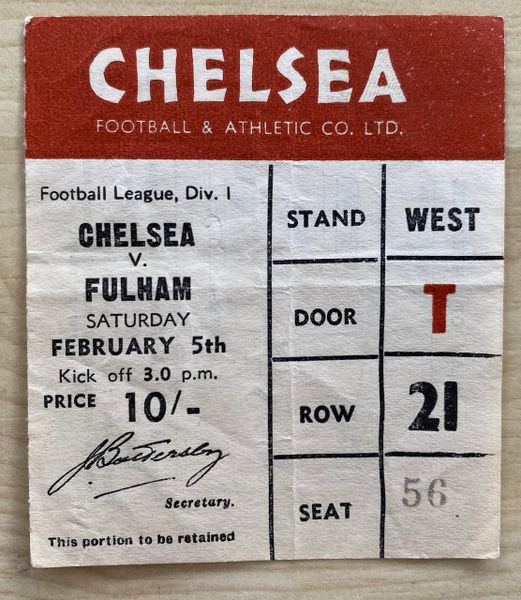 CHELSEA
FOOTBALL & ATHLETIC CO. LTD.
Football League, Div. I
CHELSEA
V.
FULHAM
SATURDAY
FEBRUARY 5th
Kick off 3.0 p.m.
PRICE 10/-
J Battersby
Secretary.
This portion to be retained
STAND WEST
DOOR T
ROW 21
SEAT 56